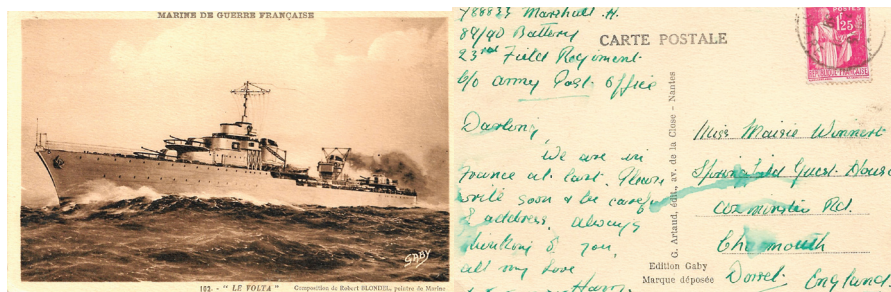 MARINE DE GUERRE FRANÇAISE
GABY
103. - "LE VOLTA" Composition de Robert BLONDEL, peintre de Marine
788833 Marshall. H.
89/90 Battery
23rd Field Regiment.
c/o Army Post Office
Darling,
We are in
France at last. Please
write soon & be careful
of address. Always
thinking of you,
all my love
Harry
CARTE POSTALE
G. Artaud, édit., av. de la Close - Nantes
Edition Gaby
Marque déposée
POSTES
1F25
REPUBLIQUE FRANÇAISE
Miss Maisie Winnert
Guest House
Axminster Rd.
Charmouth
Dorset England